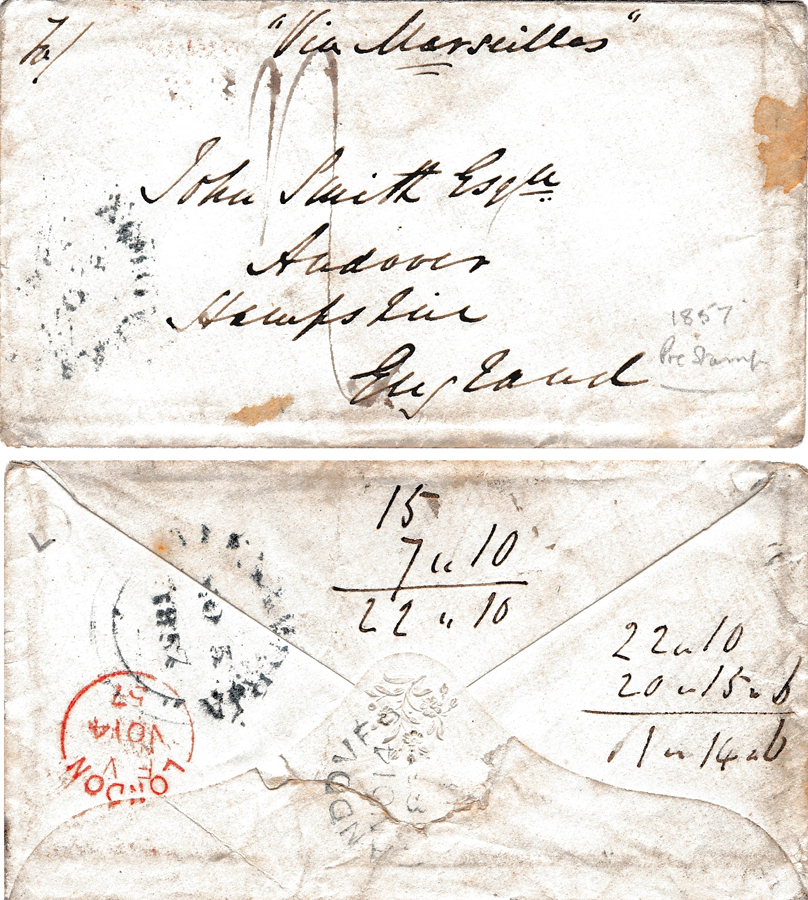 "Via Marseilles"
John Smith Esqre
Andover
Hampshire
England
1857
Pre Stamp
15
7 " 10
22 " 10
22 " 10
20 " 15 " 6
1 " 14 " 6
LONDON
NO 14
57
NO 14